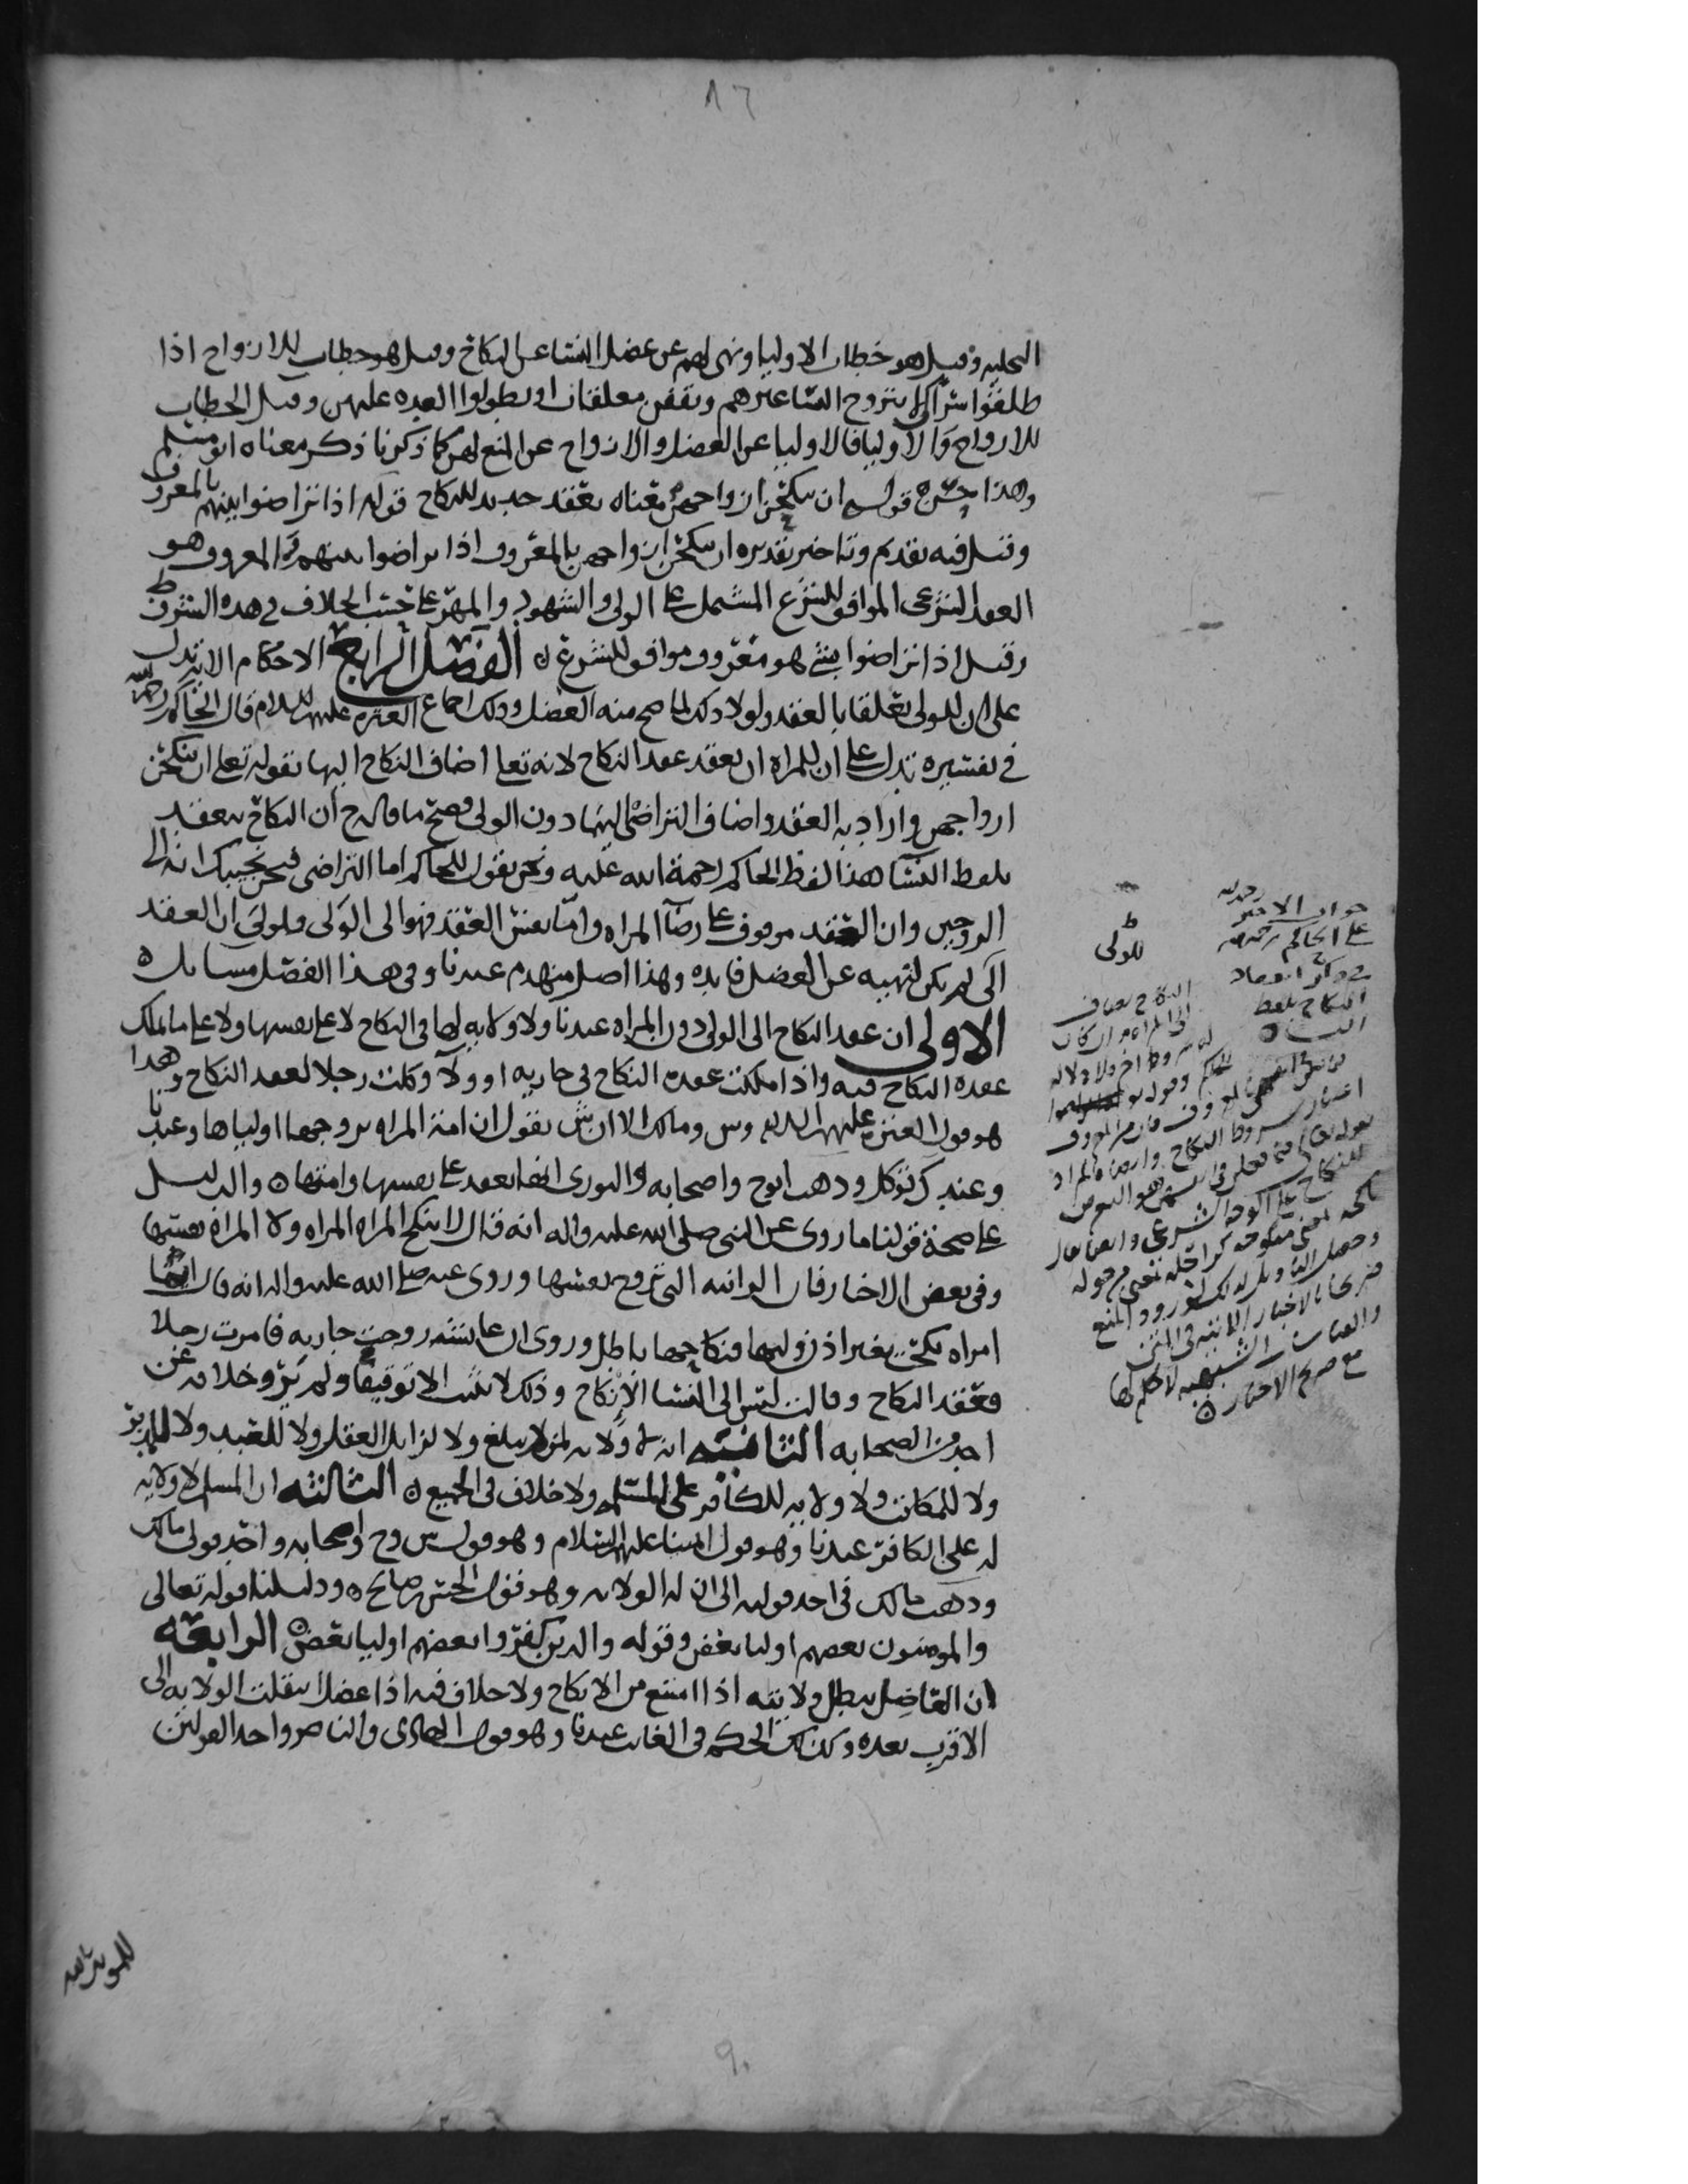 ٨٦
التحليه وقيل هو خطاب الاوليا ونهي لهم عن عضل النسا عن النكاح وقيل هو خطاب للازواج اذا
طلقوا سرا كيلا يتزوج النسا غيرهم وتقفن معلقات او يطولوا العده عليهن وقيل الخطاب
للازواج والاوليا فالاوليا عن العضل والازواج عن المنع لهن كما ذكرنا ذكر معناه ابو مسلم
وهذا حسن قوله ان ينكحن ازواجهن معناه بعقد جديد للنكاح قوله اذا تراضوا بينهم بالمعروف
وقيل فيه تقديم وتاخير تقديره ان ينكحن ازواجهن بالمعروف اذا تراضوا بينهم والمعروف هو
العقد الشرعي الموافق للشرع المشتمل على الولي والشهود والمهر على حسب الخلاف في هذه الشروط
وقيل اذا تراضوا بشي هو معروف موافق للشرع ه الفصل الرابع الاحكام الايه تدل
على ان للولي تعلقا بالعقد ولولا ذلك لما صح منه العضل وذلك اجماع العتره عليهم السلام قال الحاكم رحمه الله
في تفسيره تدل على ان للمراه ان تعقد عقد النكاح لانه تعالى اضاف النكاح اليها بقوله تعالى ان ينكحن
ازواجهن واراد به العقد واضاف التراضي اليهما دون الولي فصح ما قاله ح ان النكاح ينعقد
بلفظ النسا هذا لفظ الحاكم رحمة الله عليه ونحن نقول للحاكم اما التراضي فنحن نجيبك انه الى
الزوجين وان العقد موقوف على رضآ المراه واما نفس العقد فهو الى الولي ولولى ان العقد
الى لم يكن لنهيه عن العضل فايده وهذا اصل منهدم عندنا وفي هذا الفصل مسايل ه
الاولى ان عقد النكاح الى الولي دون المراه عندنا ولا ولايه لها في النكاح لا على نفسها ولا على ما ملك
عقده النكاح فيه واذا ملكت عقدة النكاح في جاريه او ولآ وكلت رجلا لعقد النكاح وهذا
هو قول العتره عليهم السلم وش ومالك الا ان ش يقول ان امة المراه يزوجها اولياها وعندنا
وعند ك توكل وذهب ابوح واصحابه والثوري انها تعقد على نفسها وامتها ه والدليل
على صحة قولنا ما روي عن النبي صلى الله عليه واله انه قال لا تنكح المراه المراه ولا المراة نفسها
وفي بعض الاخبار فان الزانيه التي تزوج نفسها وروي عنه صلى الله عليه واله انه قال ايما
امراه نكحت بغير اذن وليها فنكاحها باطل وروي ان عايشه زوجت جاريه فامرت رجلا
فعقد النكاح وقالت ليس الى النسا الانكاح وذلك لا يثبت الا توقيفا ولم يرو خلافه عن
احد من الصحابه الثانيه انه لا ولايه لمن لم يبلغ ولا لزايل العقل ولا للعبد ولا للمدبر
ولا للمكاتب ولا ولايه للكافر على المسلمه ولا خلاف في الجميع ه الثالثه ان المسلم لا ولايه
له على الكافر عندنا وهو قول ايمتنا عليهم السلام وهو قول ش وح واصحابه واحد قولى مالك
وذهب مالك في احد قوليه الى ان له الولايه وهو قول الحسن بن صالح ه ودليلنا قوله تعالى
والمومنون بعضهم اوليا بعض وقوله والذين كفروا بعضهم اوليا بعض ه الرابعه
ان العاضل يبطل ولايته اذا امتنع من الانكاح ولا خلاف فيه اذا عضل انتقلت الولايه الى
الاقرب بعده وكذلك الحكم في الغايب عندنا وهو قول الهادي والناصر واحد القولين
للمويد بالله
للولي
جواب الامير رحمه الله
على الحاكم رحمه الله
في ذكر انعقاد
النكاح بلفظ
النسا ه
النكاح يضاف
الى المراه وان كان
له شروط اخر ولا دلاله
اعتبار شروط النكاح وايضا فالمراد
للنكاح على الوجه الشرعي وايضا
مع صريح الاخبار ه
٩٠